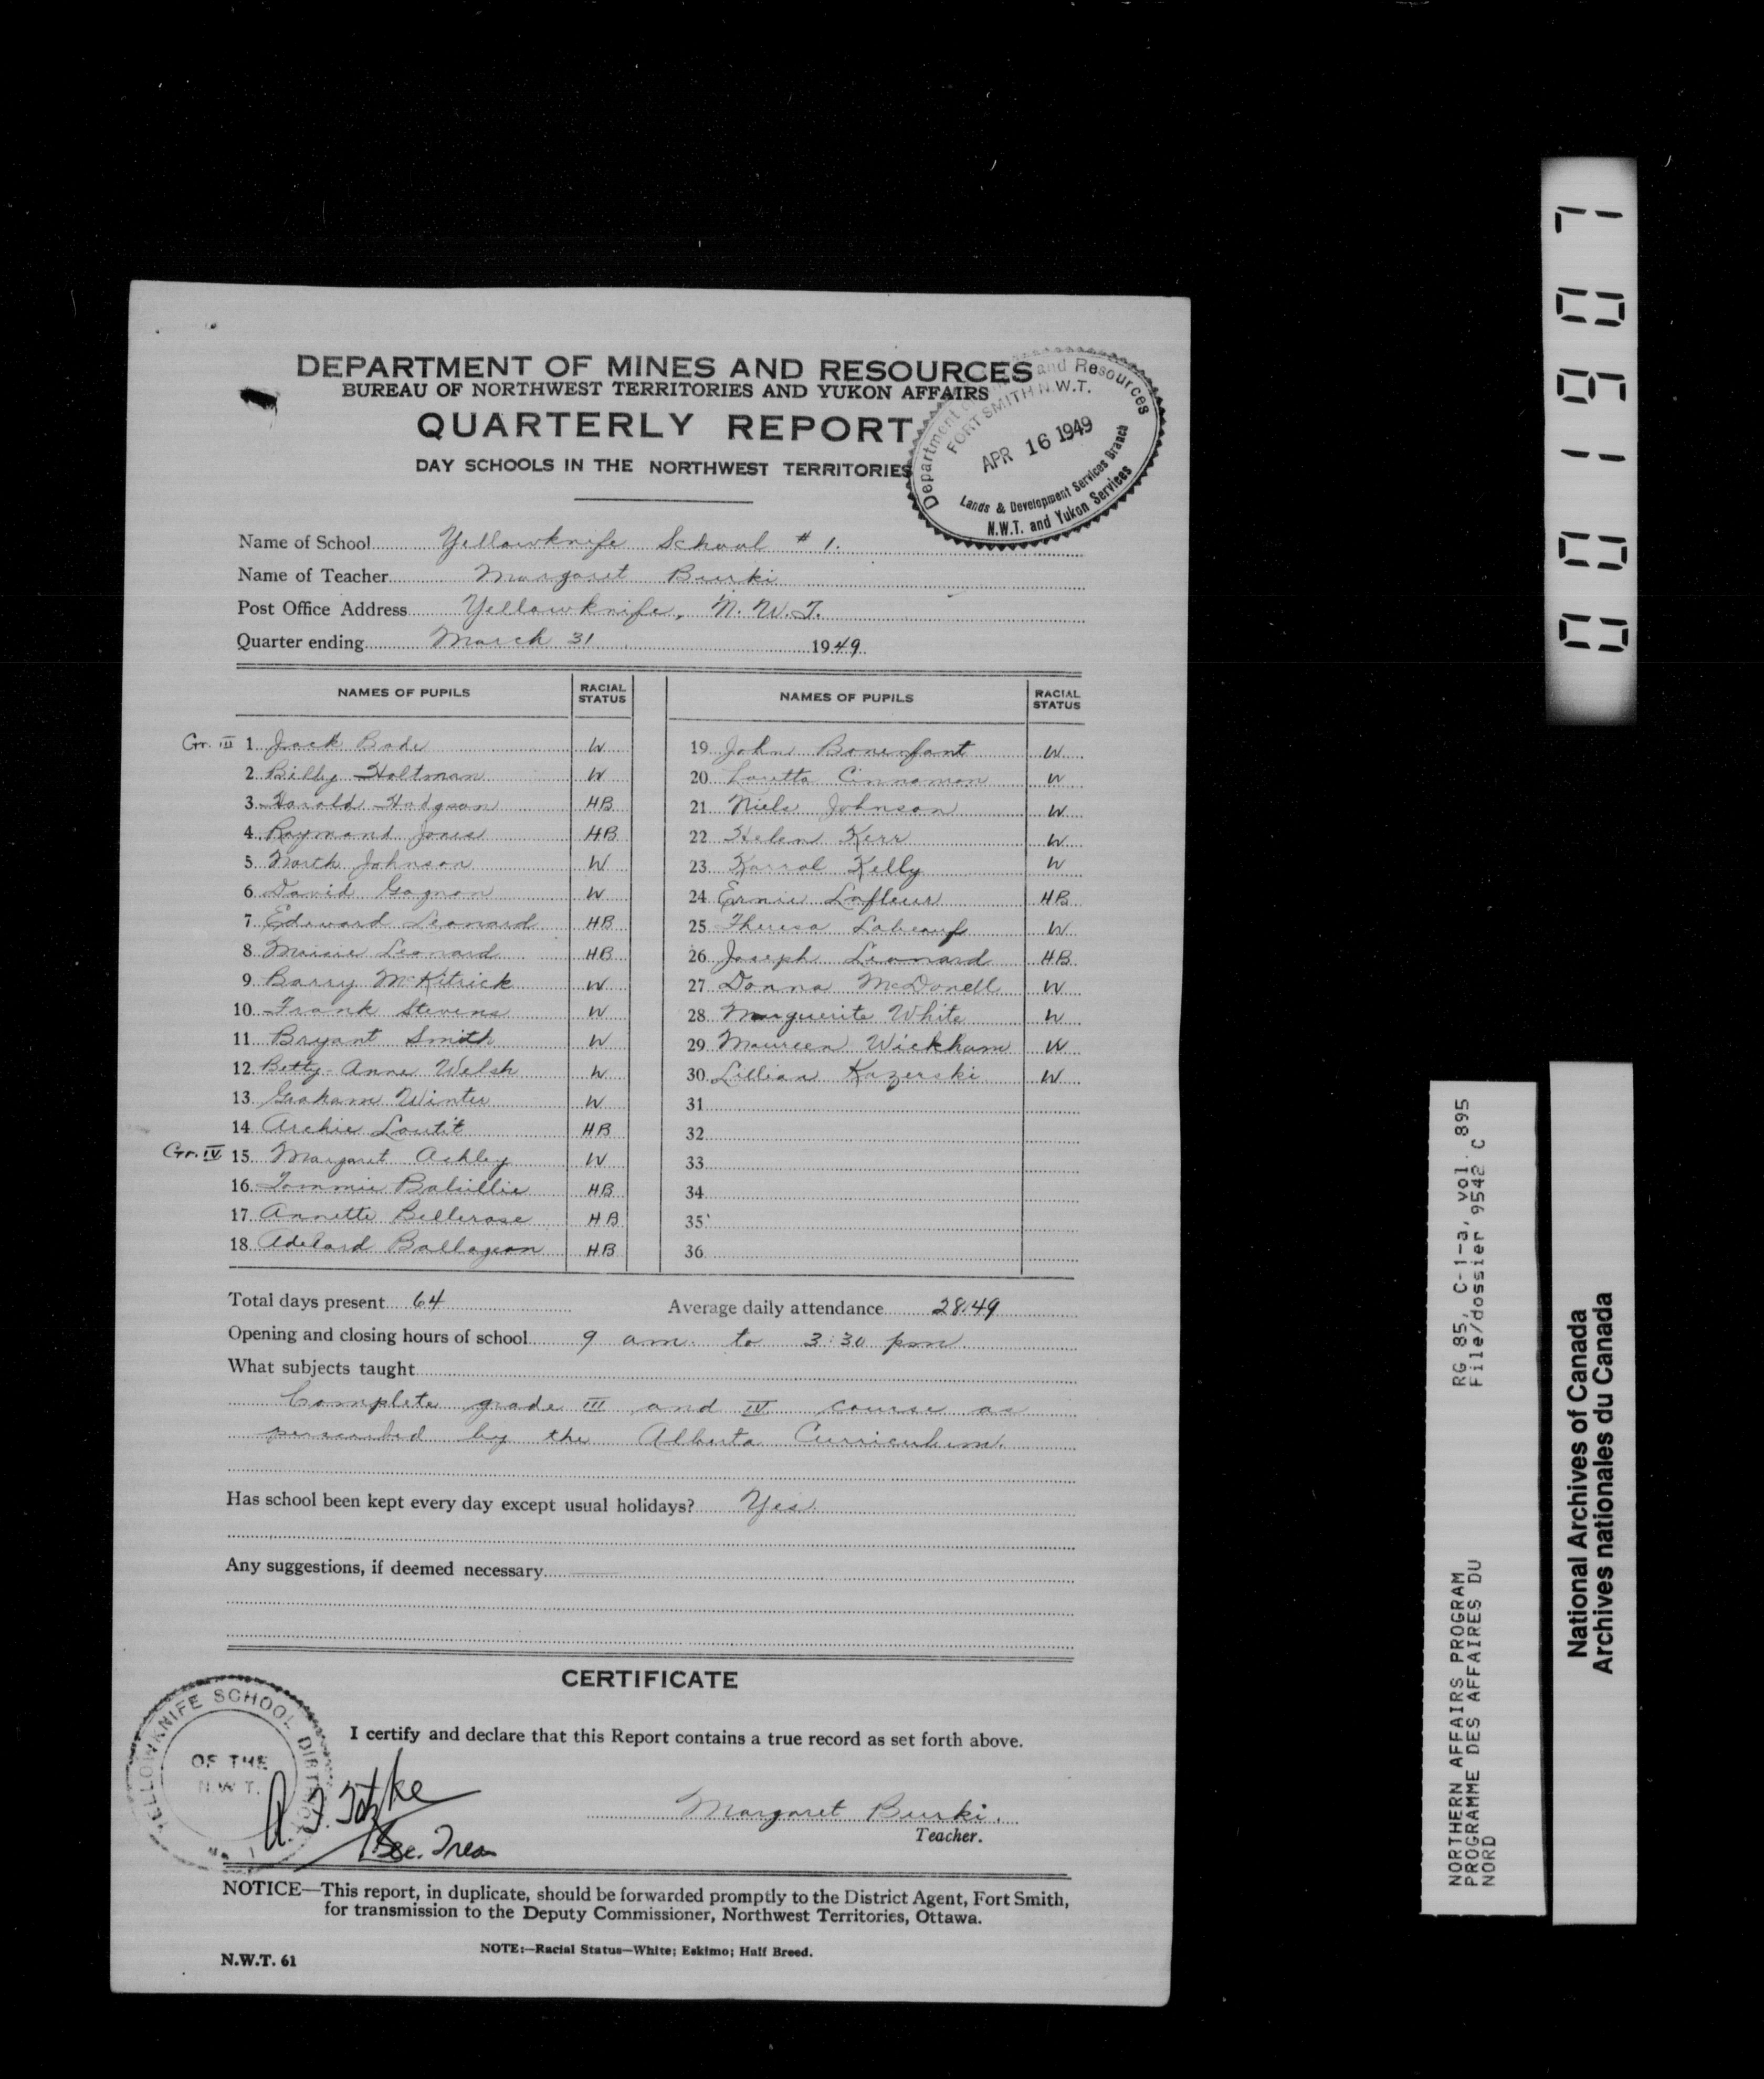 DEPARTMENT OF MINES AND RESOURCES
BUREAU OF NORTHWEST TERRITORIES AND YUKON AFFAIRS
QUARTERLY REPORT
DAY SCHOOLS IN THE NORTHWEST TERRITORIES
Department and Resources
FORT SMITH N.W.T.
APR 16 1949
Lands & Development Services Branch
N.W.T. and Yukon Services
Name of School Yellowknife School # 1.
Name of Teacher Margaret Burki
Post Office Address Yellowknife, N.W.T.
Quarter ending March 31 1949
NAMES OF PUPILS RACIAL STATUS
Gr. III 1 Jack Bode W
2 Billy Holtman W
3 Harold Hodgson HB
4 Raymond Jones HB
5 North Johnson W
6 David Gagnon W
7 Edward Leonard HB
8 Maisie Leonard HB
9 Barry McKitrick W
10 Frank Stevens W
11 Bryant Smith W
12 Betty-Anne Welsh W
13 Graham Winter W
14 Archie Loutit HB
Gr. IV 15 Margaret Ashley W
16 Tommie Balsillie HB
17 Annette Bellerose HB
18 Adelard Ballageon HB
NAMES OF PUPILS RACIAL STATUS
19 John Bonenfant W
20 Loretta Cinnamon W
21 Niels Johnson W
22 Helen Kerr W
23 Karral Kelly W
24 Ernie Lafleur HB
25 Theresa Labeauf W
26 Joseph Leonard HB
27 Donna McDonell W
28 Marguerite White W
29 Maureen Wickham W
30 Lillian Kozerski W
31
32
33
34
35
36
Total days present 64 Average daily attendance 28.49
Opening and closing hours of school 9 am. to 3:30 pm.
What subjects taught
Complete grade III and IV course as
perscribed by the Alberta Curriculum.
Has school been kept every day except usual holidays? Yes.
Any suggestions, if deemed necessary
CERTIFICATE
YELLOWKNIFE SCHOOL DISTRICT
OF THE
N.W.T.
No. 1
I certify and declare that this Report contains a true record as set forth above.
Margaret Burki.
Teacher.
Sec. Treas
NOTICE—This report, in duplicate, should be forwarded promptly to the District Agent, Fort Smith,
for transmission to the Deputy Commissioner, Northwest Territories, Ottawa.
NOTE:—Racial Status—White; Eskimo; Half Breed.
N.W.T. 61
001907
RG 85, C-1-a, vol. 895
File/dossier 9542 C
NORTHERN AFFAIRS PROGRAM
PROGRAMME DES AFFAIRES DU
NORD
National Archives of Canada
Archives nationales du Canada